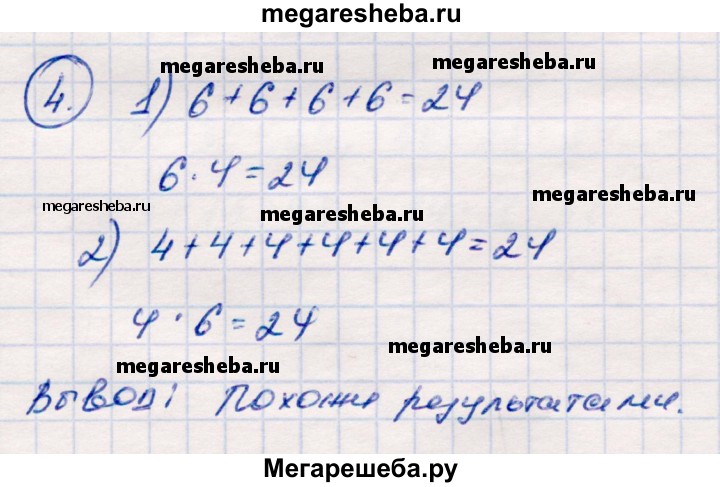 megaresheba.ru
megaresheba.ru
megaresheba.ru
4. 1) 6+6+6+6=24
6·4=24
megaresheba.ru
megaresheba.ru
megaresheba.ru
2) 4+4+4+4+4+4=24
4·6=24
megaresheba.ru
megaresheba.ru
Вывод: Похожи результатами.
Мегарешеба.ру